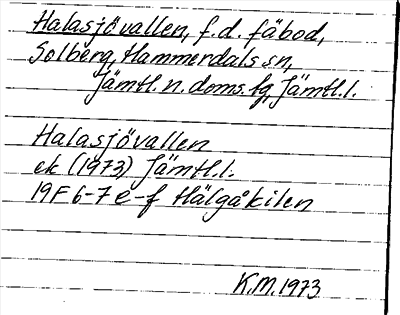 Halasjövallen, f.d. fäbod,
Solberg, Hammerdals sn,
Jämtl. n. doms. fg, Jämtl. l.
Halasjövallen
ek (1973) Jämtl. l.
19F 6-7 e-f Hälgåkilen
K.M. 1973